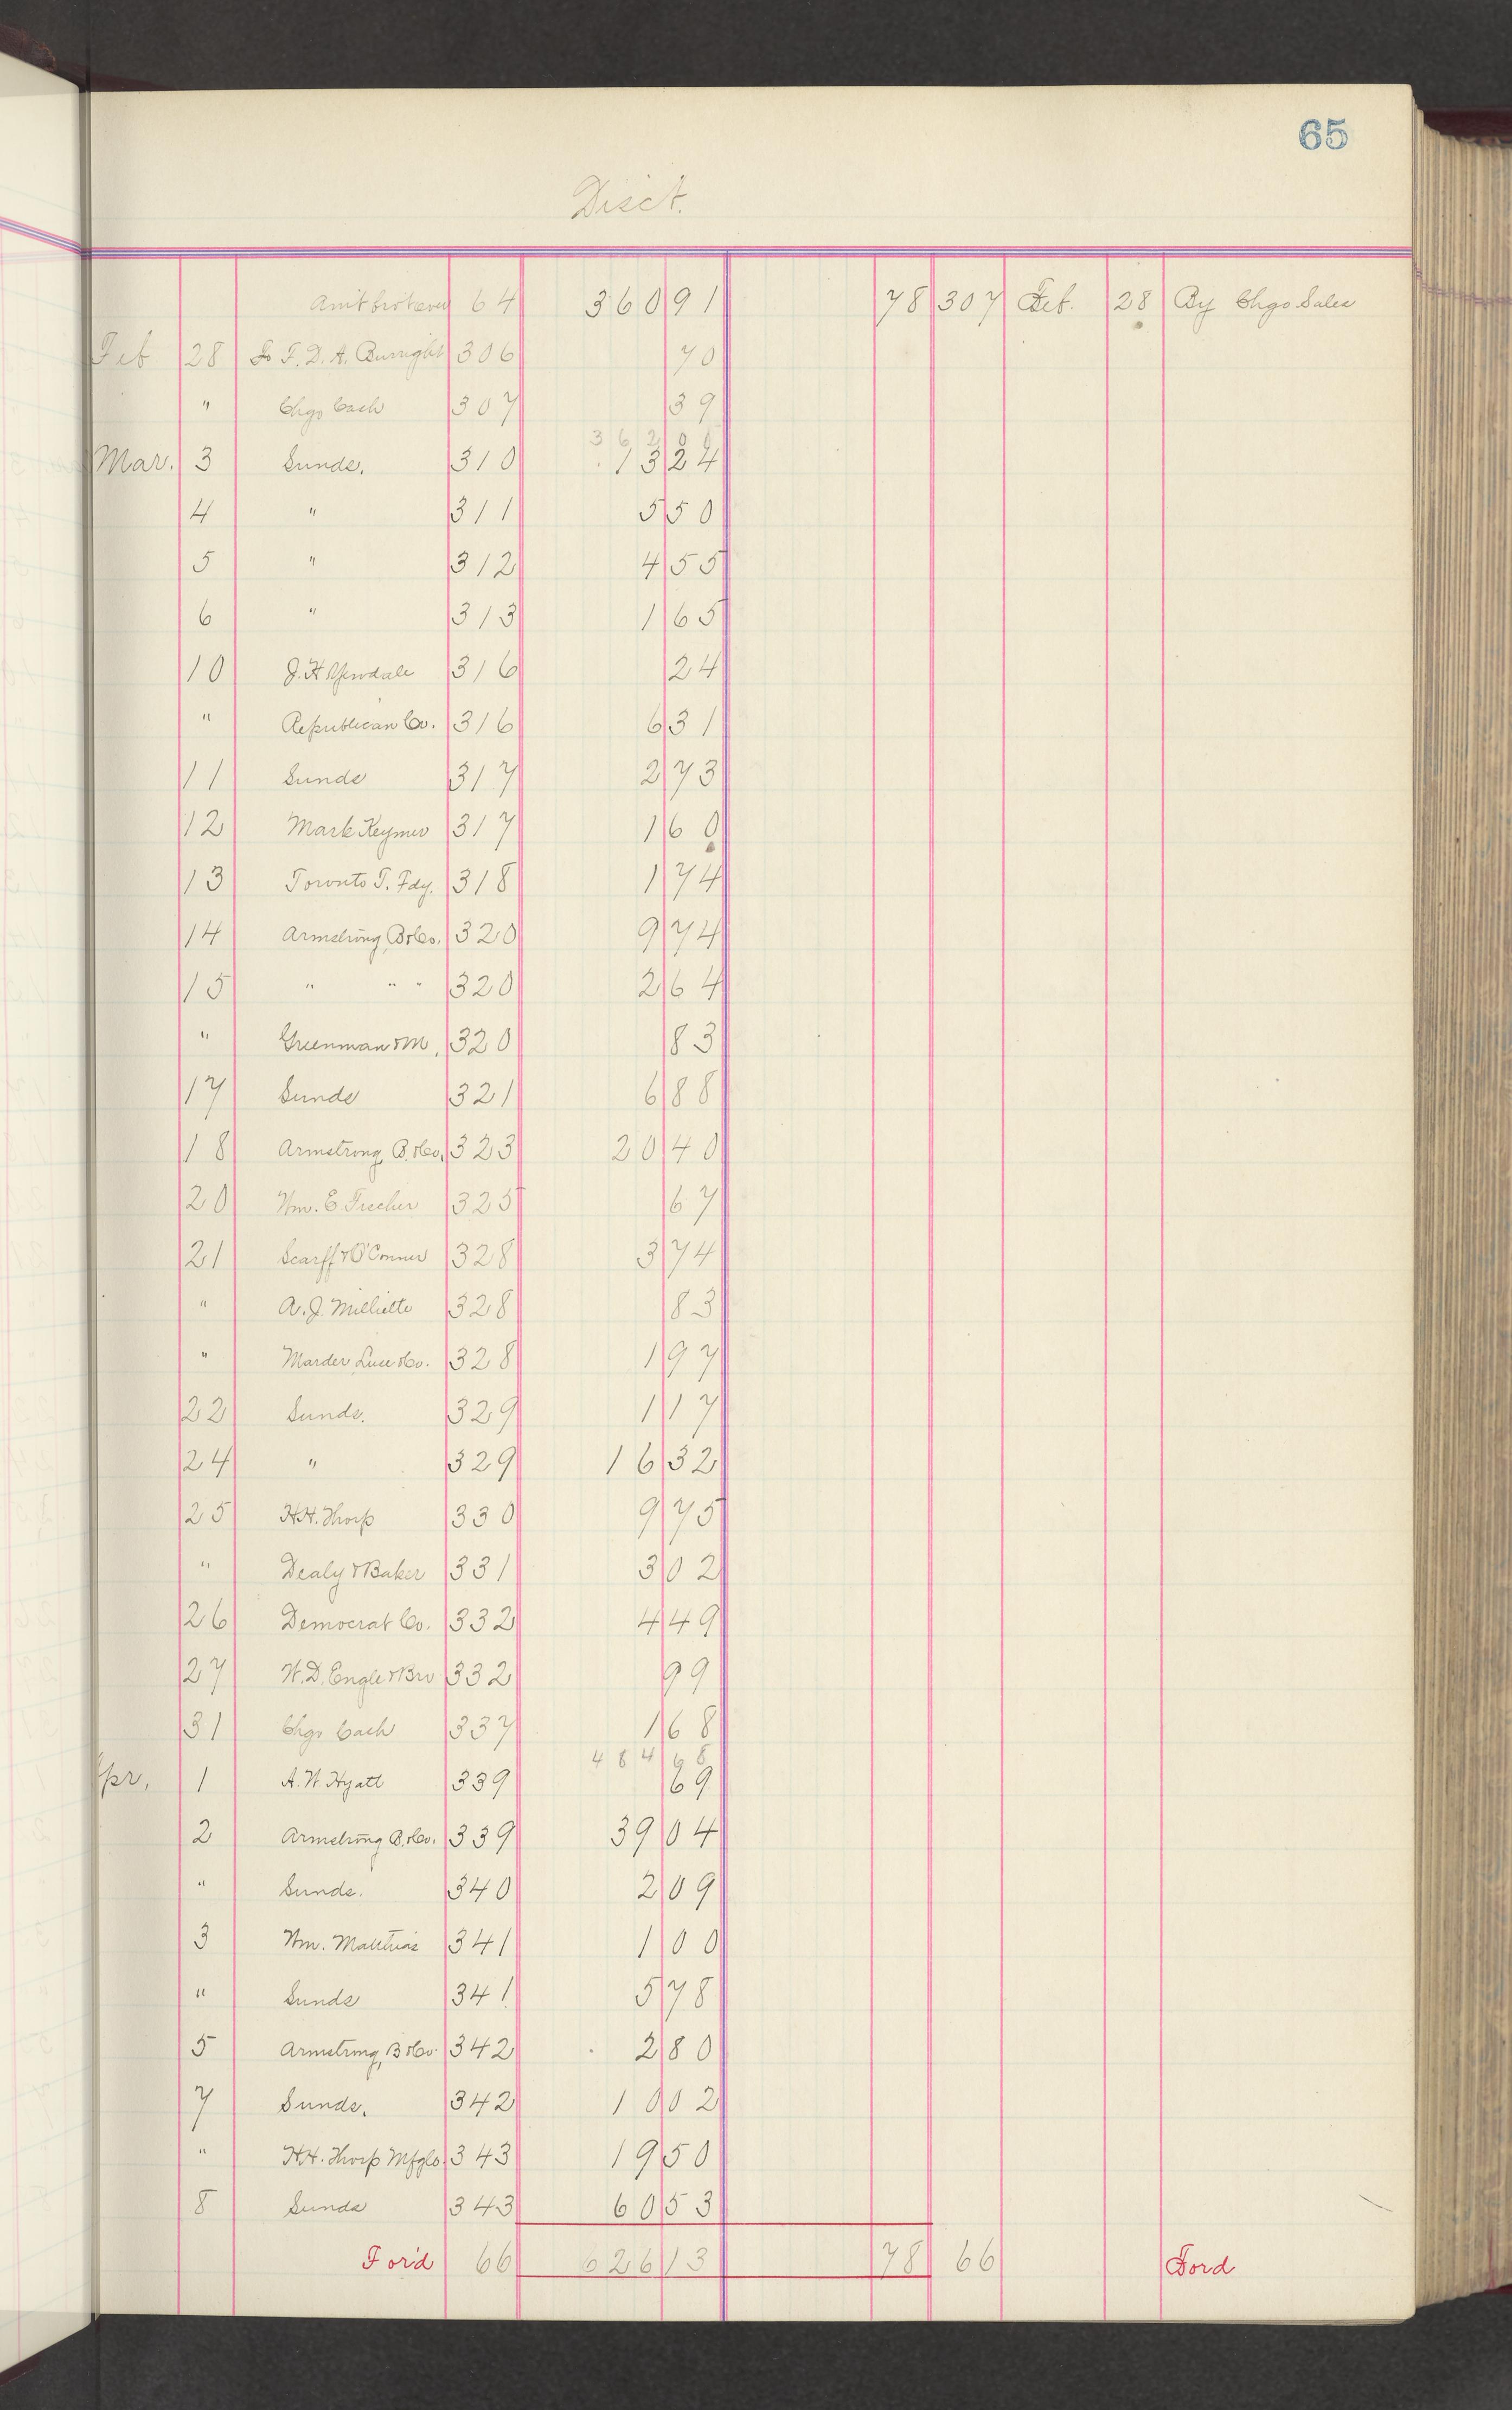 65
Disct.
Amt brot over 64 360 91 78 307 Feb. 28 By Chgo Sales
Feb 28 To F. D. A. 306 70
" Chgo Cash 307 39
362 00
Mar. 3 Sunds. 310 13 24
4 " 311 5 50
5 " 312 4 55
6 " 313 1 65
10 J. H. 316 24
" Republican Co. 316 6 31
11 Sunds 317 2 73
12 Mark Keymer 317 1 60
13 Toronto T. Fdy. 318 1 74
14 Armstrong B & Co. 320 9 74
15 " " " 320 2 64
" Greenman & M. 320 83
17 Sunds 321 6 88
18 Armstrong B. & Co. 323 20 40
20 Wm. E. 325 67
21 Scarff & O'Connor 328 3 74
" A. J. 328 83
" Marder, Luse & Co. 328 1 97
22 Sunds. 329 1 17
24 " 329 16 32
25 H. H. Thorp 330 9 75
" Dealy & Baker 331 3 02
26 Democrat Co. 332 4 49
27 W. D. Engle & Bro 332 99
31 Chgo Cash 337 1 68
484 68
Apr. 1 A. W. Hyatt 339 69
2 Armstrong B. & Co. 339 39 04
" Sunds. 340 2 09
3 Wm. Matthias 341 1 00
" Sunds 341 5 78
5 Armstrong, B & Co. 342 2 80
7 Sunds. 342 10 02
" H. H. Thorp Mfg Co. 343 19 50
8 Sunds 343 60 53
For'd 66 626 13 78 66 Ford